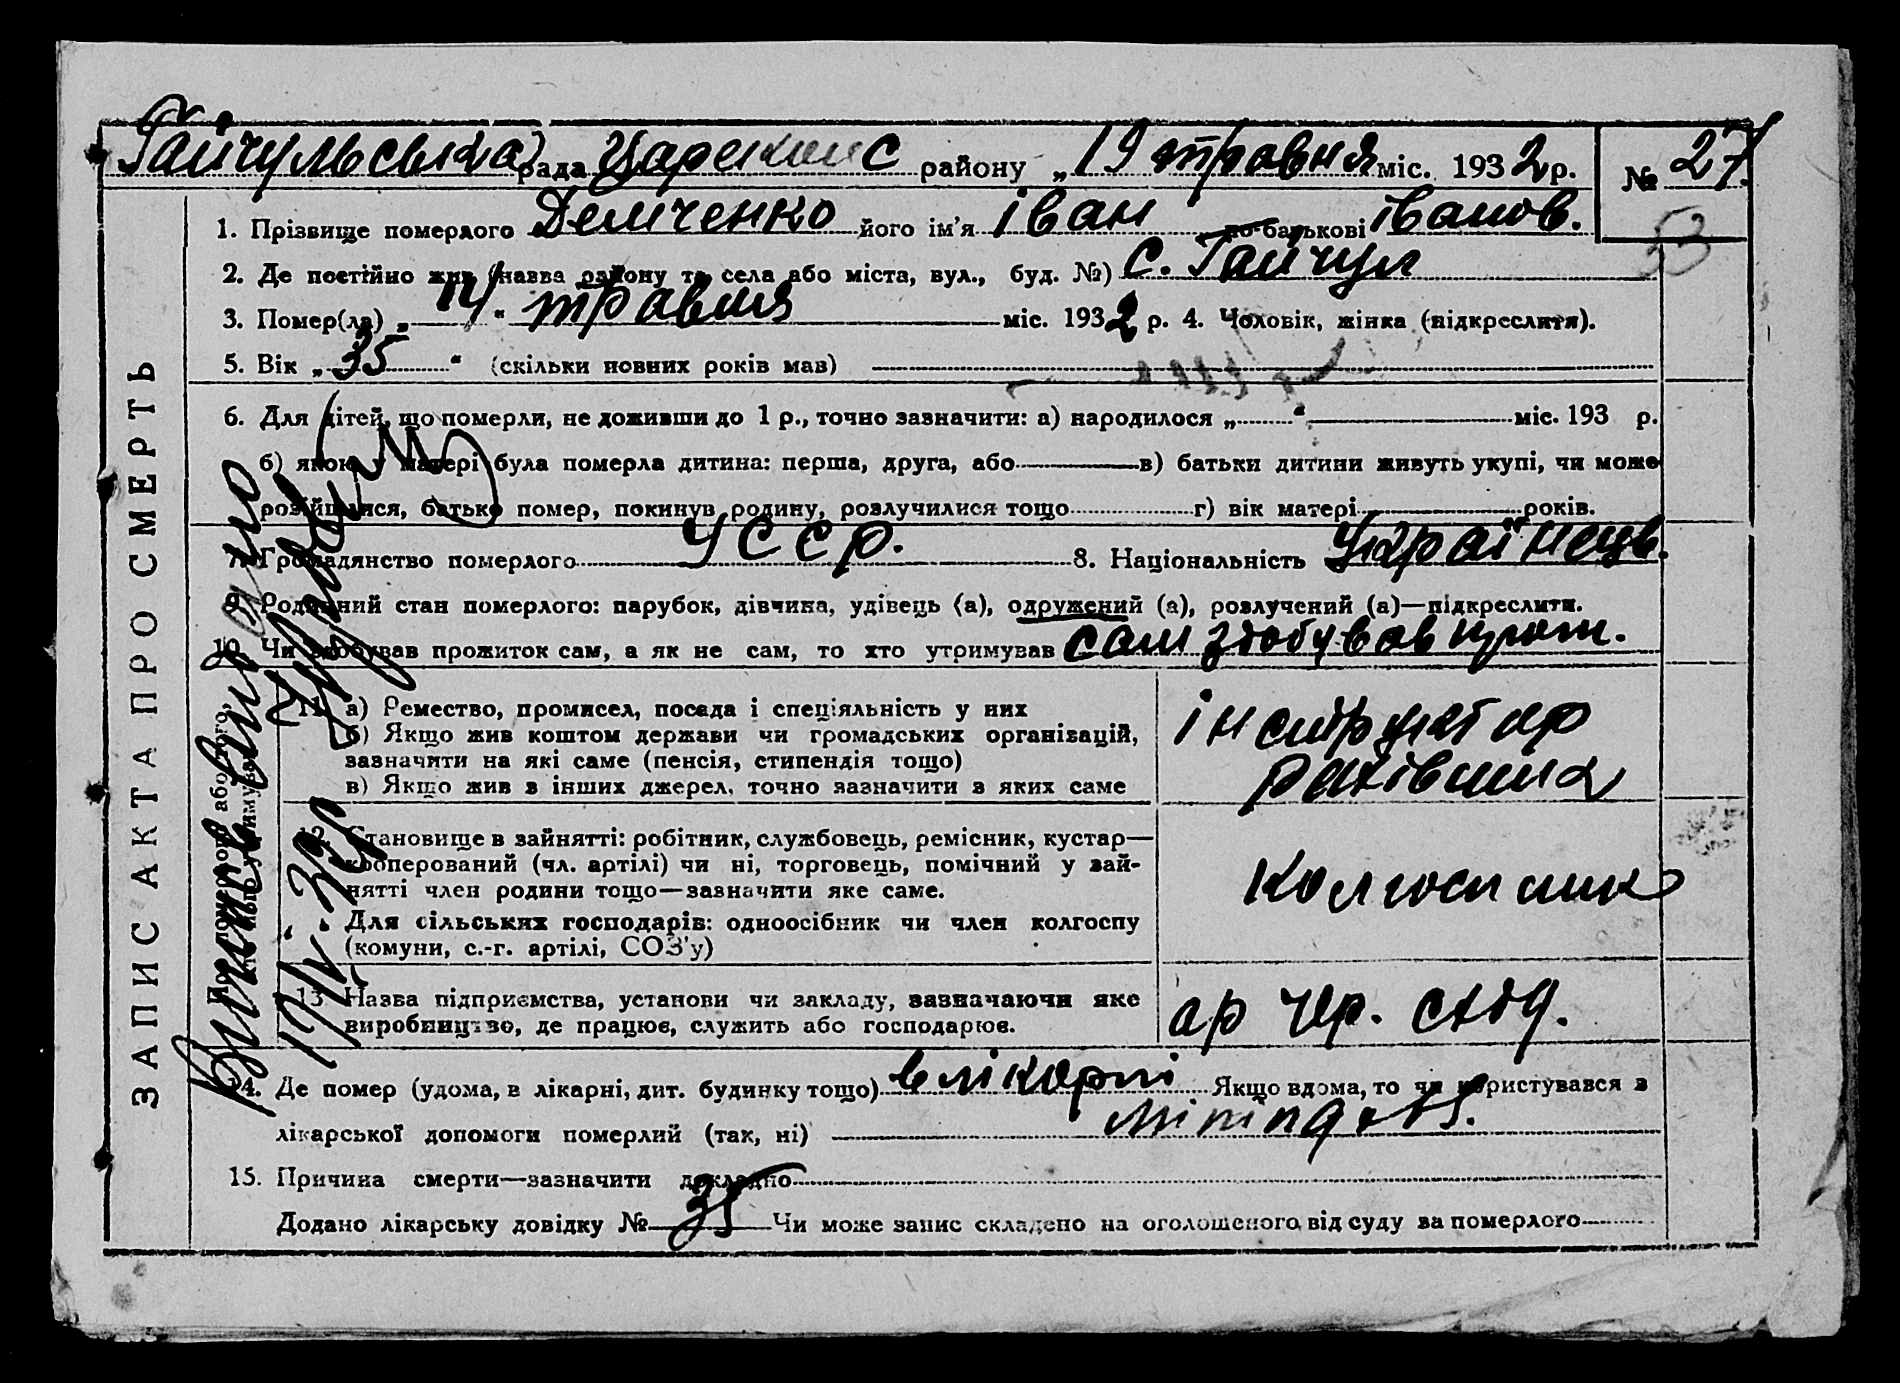 Гайчульська рада Царекон с району „19 травня міс. 1932 р. № 27
53
1. Прізвище померлого Демченко його ім'я Іван по-батькові Іванов.
2. Де постійно жив (назва району та села або міста, вул., буд. №) с. Гайчул
3. Помер(ла) „14“ травня міс. 1932 р. 4. Чоловік, жінка (підкреслити).
5. Вік „35“ (скільки повних років мав)
6. Для дітей, що померли, не доживши до 1 р., точно зазначити: а) народилося „ “ міс. 193 р.
б) якою у матері була померла дитина: перша, друга, або в) батьки дитини живуть укупі, чи може
розійшлися, батько помер, покинув родину, розлучилися тощо г) вік матері років.
7. Громадянство померлого УССР. 8. Національність Українець.
9. Родинний стан померлого: парубок, дівчина, удівець (а), одружений (а), розлучений (а)—підкреслити.
10. Чи здобував прожиток сам, а як не сам, то хто утримував сам здобував прож.
ЗАПИС АКТА ПРО СМЕРТЬ
Про померлого або того, хто його утримував
11. а) Ремество, промисел, посада і спеціяльність у них
б) Якщо жив коштом держави чи громадських організацій,
зазначити на які саме (пенсія, стипендія тощо)
в) Якщо жив з інших джерел, точно зазначити з яких саме
інструктор
12. Становище в зайнятті: робітник, службовець, ремісник, кустар—
кооперований (чл. артілі) чи ні, торговець, помічний у зай-
нятті член родини тощо—зазначити яке саме.
Для сільських господарів: одноосібник чи член колгоспу
(комуни, с.-г. артілі, СОЗ'у)
колгоспник
13. Назва підприємства, установи чи закладу, зазначаючи яке
виробництво, де працює, служить або господарює.
ар Чер. схід.
14. Де помер (удома, в лікарні, дит. будинку тощо) в лікарні Якщо вдома, то чи користувався з
лікарської допомоги померлий (так, ні)
15. Причина смерти—зазначити докладно
Додано лікарську довідку № 35 Чи може запис складено на оголошеного від суду за померлого